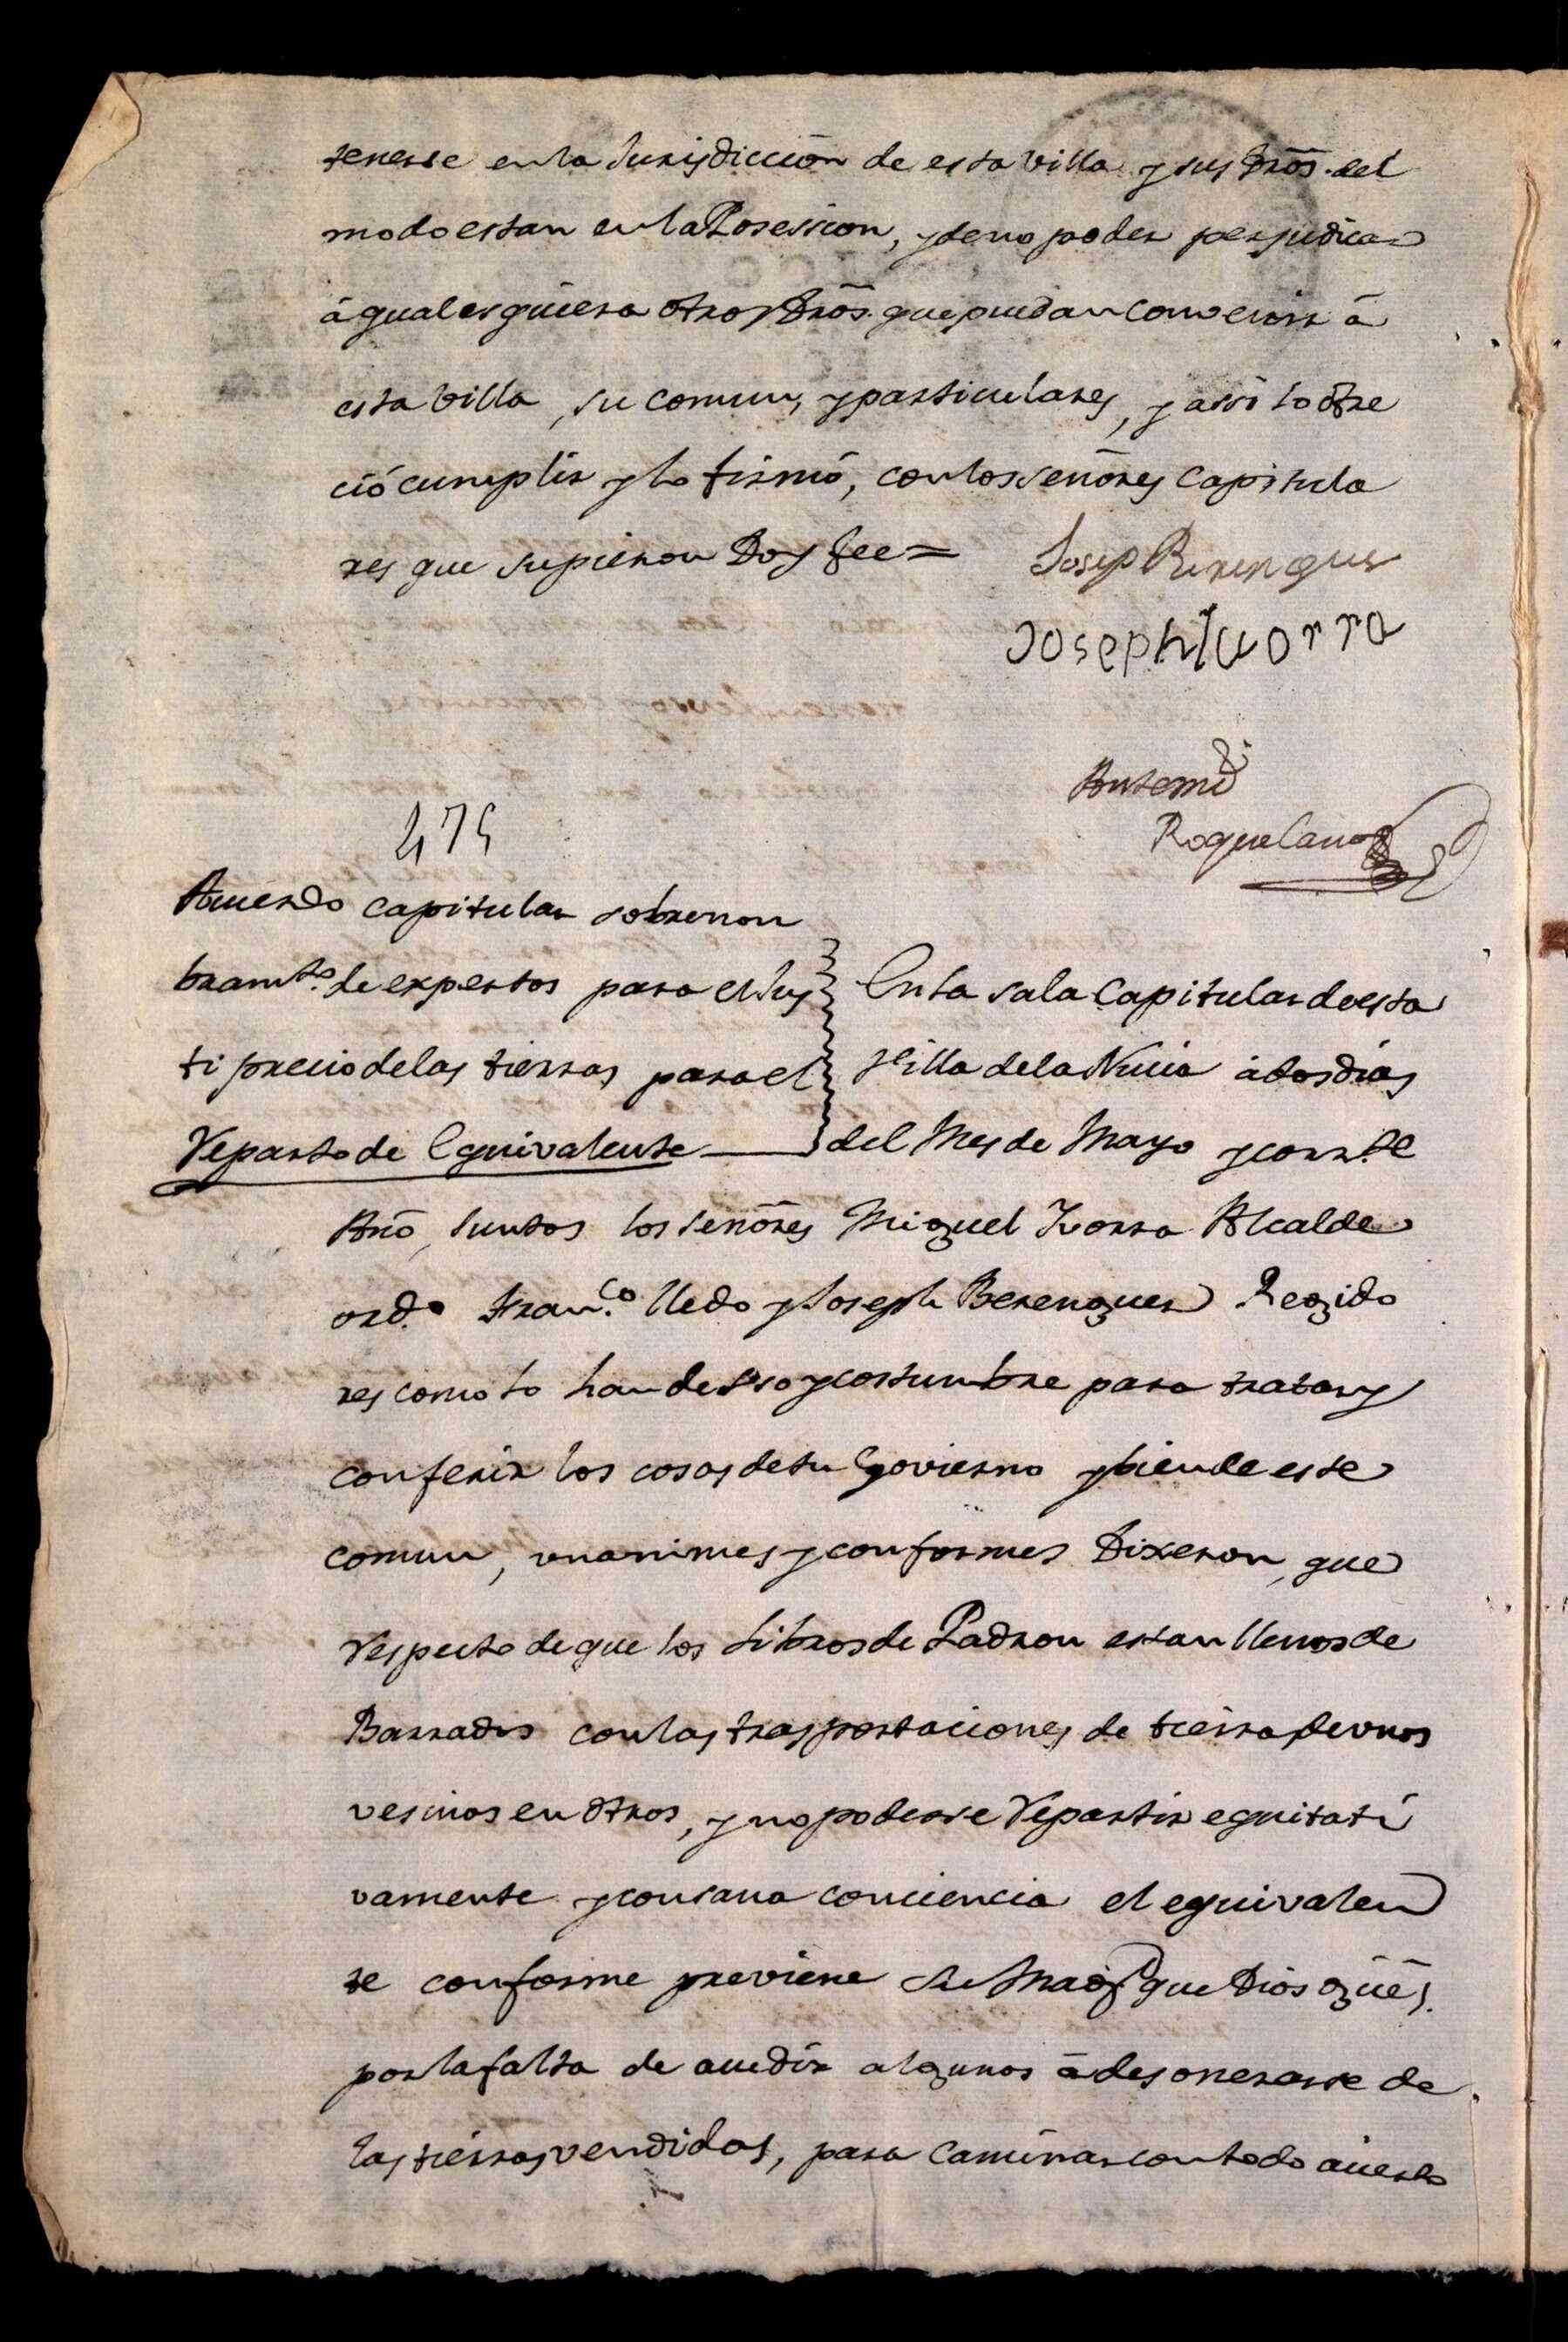 tenerse en la Jurisdiccion de esta Villa y sus dr̃os. del
modo estan en la Posession, y de no poder perjudicar
à qualesquiera otros dr̃os. que puedan convenir à
esta Villa, su comun, y particulares, y assi lo ofre
ció cumplir y lo firmó, con los señores Capitula
res que supieron Doy fee =
Josep Berenguer
Joseph Ivorra
Antemi
Roque Cano
475
Acuerdo Capitular sobre non
bramto. de expertos para el Jus
ti precio de las tierras para el
Reparto de Equivalente
En la sala Capitular de esta
Villa de la Nucia à dos dias
del Mes de Mayo y corrte
Año, Juntos los señores Miguel Ivorra Alcalde
ordo. Franco. Lledo y Joseph Berenguer Regido
res como lo han de Uso y costumbre para tratar y
conferir las cosas de su Govierno y bien de este
comun, unanimes y conformes Dixeron, que
Respecto de que los Libros de Padron estan llenos de
Barrados con las trasportaciones de tierra de unos
vesinos en otros, y no poderse Repartir equitati
vamente y con sana conciencia el equivalen
te conforme previene Su Magd. que Dios güe,
por la falta de acudir algunos à desonerarse de
las tierras vendidas, para caminar con todo acierto